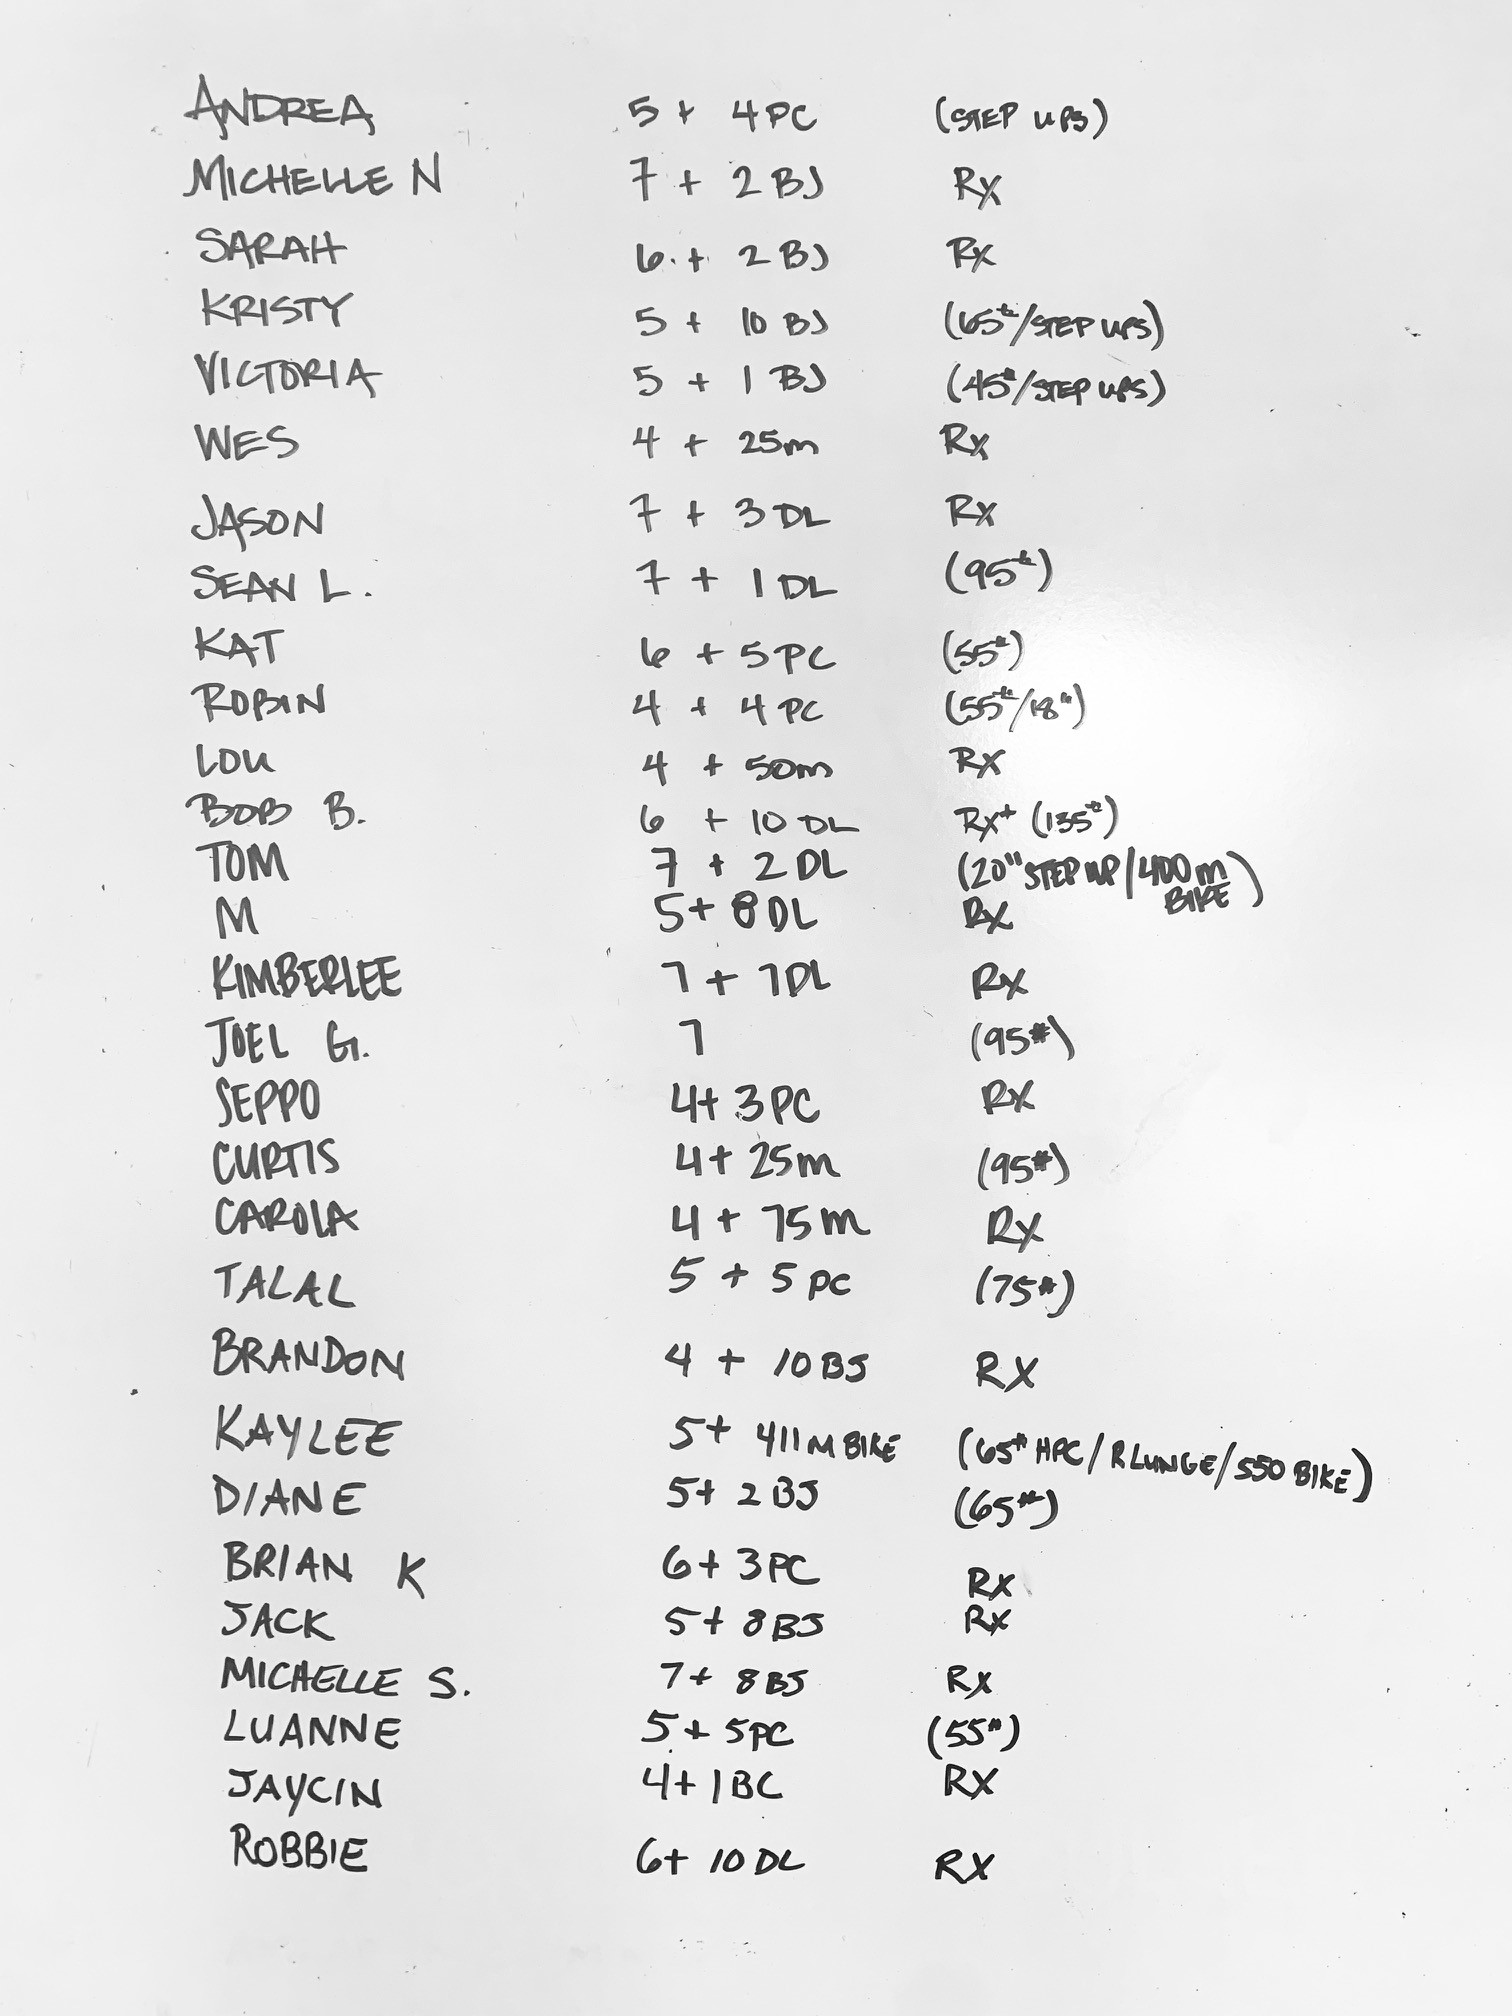 ANDREA 5 + 4 PC (STEP UPS)
MICHELLE N 7 + 2 BJ Rx
SARAH 6 + 2 BJ Rx
KRISTY 5 + 10 BJ (65#/STEP UPS)
VICTORIA 5 + 1 BJ (45#/STEP UPS)
WES 4 + 25m Rx
JASON 7 + 3 DL Rx
SEAN L. 7 + 1 DL (95#)
KAT 6 + 5 PC (55#)
ROBIN 4 + 4 PC (55#/18")
LOU 4 + 50m Rx
BOB B. 6 + 10 DL Rx+ (135#)
TOM 7 + 2 DL (20" STEP UP/400m BIKE)
M 5 + 8 DL Rx
KIMBERLEE 7 + 7 DL Rx
JOEL G. 7 (95#)
SEPPO 4 + 3 PC Rx
CURTIS 4 + 25m (95#)
CAROLA 4 + 75m Rx
TALAL 5 + 5 PC (75#)
BRANDON 4 + 10 BJ RX
KAYLEE 5 + 411 M BIKE (65# HPC/R LUNGE/550 BIKE)
DIANE 5 + 2 BJ (65#)
BRIAN K 6 + 3 PC Rx
JACK 5 + 8 BJ Rx
MICHELLE S. 7 + 8 BJ Rx
LUANNE 5 + 5 PC (55#)
JAYCIN 4 + 1 BC RX
ROBBIE 6 + 10 DL RX